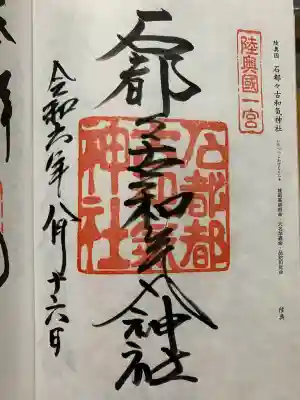 陸奥国 石都々古和気神社
陸奥
陸奥國一宮
石都々古和気神社
石都都
古和氣
神社
令和六年八月十六日